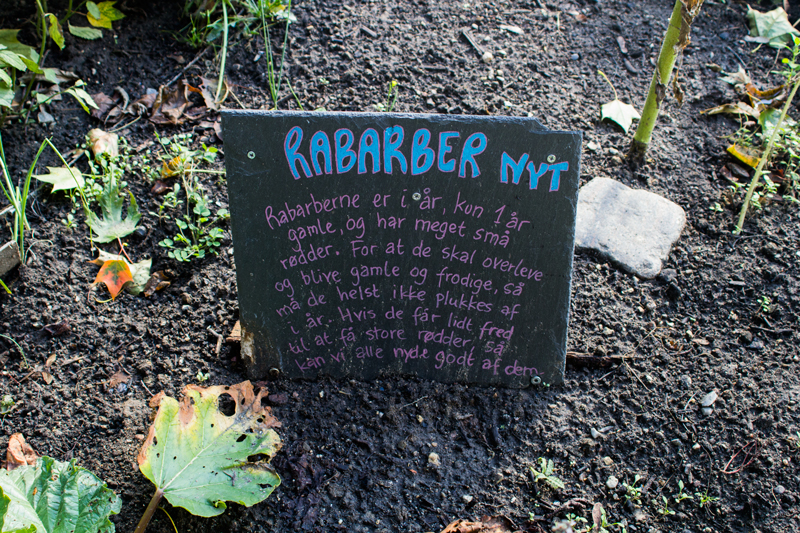 RABARBER NYT
Rabarberne er i år, kun 1 år
gamle, og har meget små
rødder. For at de skal overleve
og blive gamle og frodige, så
må de helst ikke plukkes af
i år. Hvis de får lidt fred
til at få store rødder, så
kan vi alle nyde godt af dem.